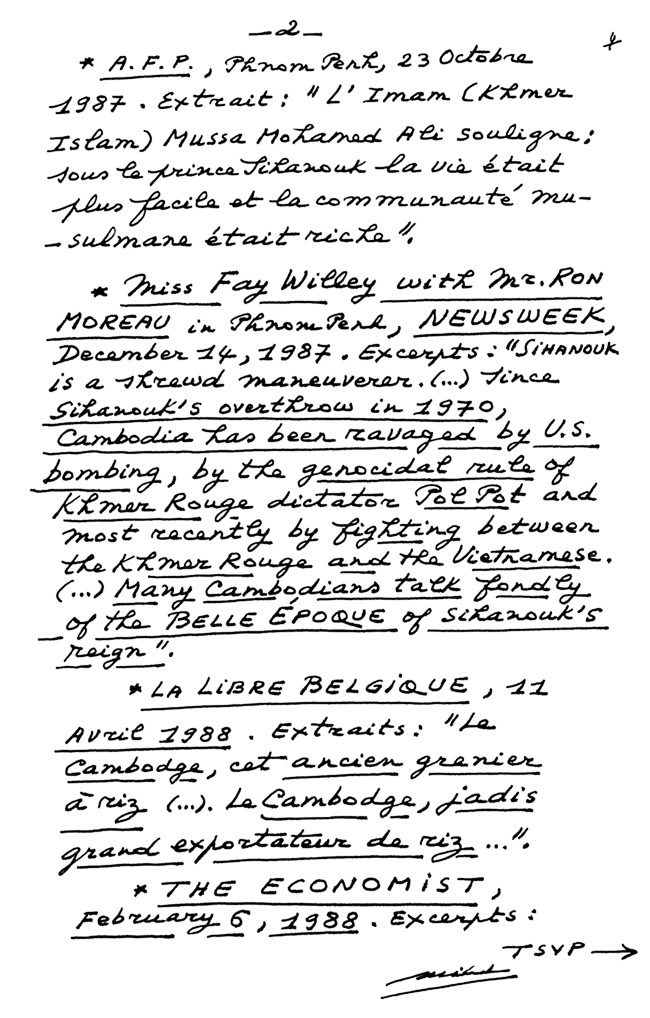 -2-
* A.F.P., Phnom Penh, 23 Octobre
1987. Extrait: "L'Imam (Khmer
Islam) Mussa Mohamed Ali souligne:
sous le prince Sihanouk la vie était
plus facile et la communauté mu-
-sulmane était riche".
* Miss Fay Willey with Mr. RON
MOREAU in Phnom Penh, NEWSWEEK,
December 14, 1987. Excerpts: "SIHANOUK
is a shrewd maneuverer. (...) Since
Sihanouk's overthrow in 1970,
Cambodia has been ravaged by U.S.
bombing, by the genocidal rule of
Khmer Rouge dictator Pol Pot and
most recently by fighting between
the Khmer Rouge and the Vietnamese.
(...) Many Cambodians talk fondly
of the BELLE ÉPOQUE of Sihanouk's
reign".
* LA LIBRE BELGIQUE, 11
Avril 1988. Extraits: "Le
Cambodge, cet ancien grenier
à riz (...). Le Cambodge, jadis
grand exportateur de riz ...".
* THE ECONOMIST,
February 6, 1988. Excerpts:
TSVP →